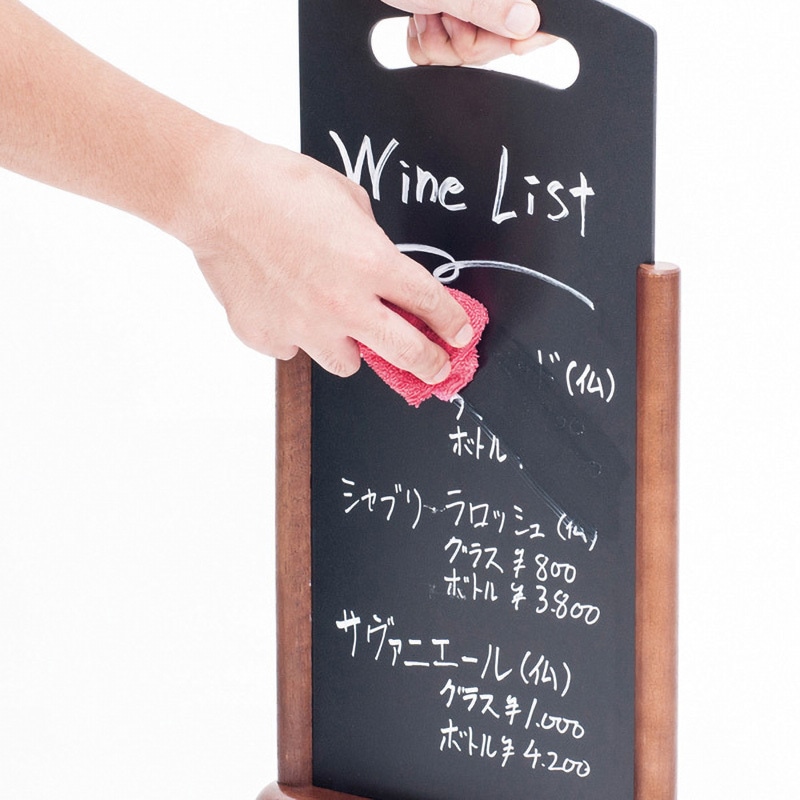 Wine List
(仏)
ボトル
シャブリーラロッシュ(仏)
グラス ¥800
ボトル ¥3.800
サヴァニエール(仏)
グラス¥1.000
ボトル¥4.200